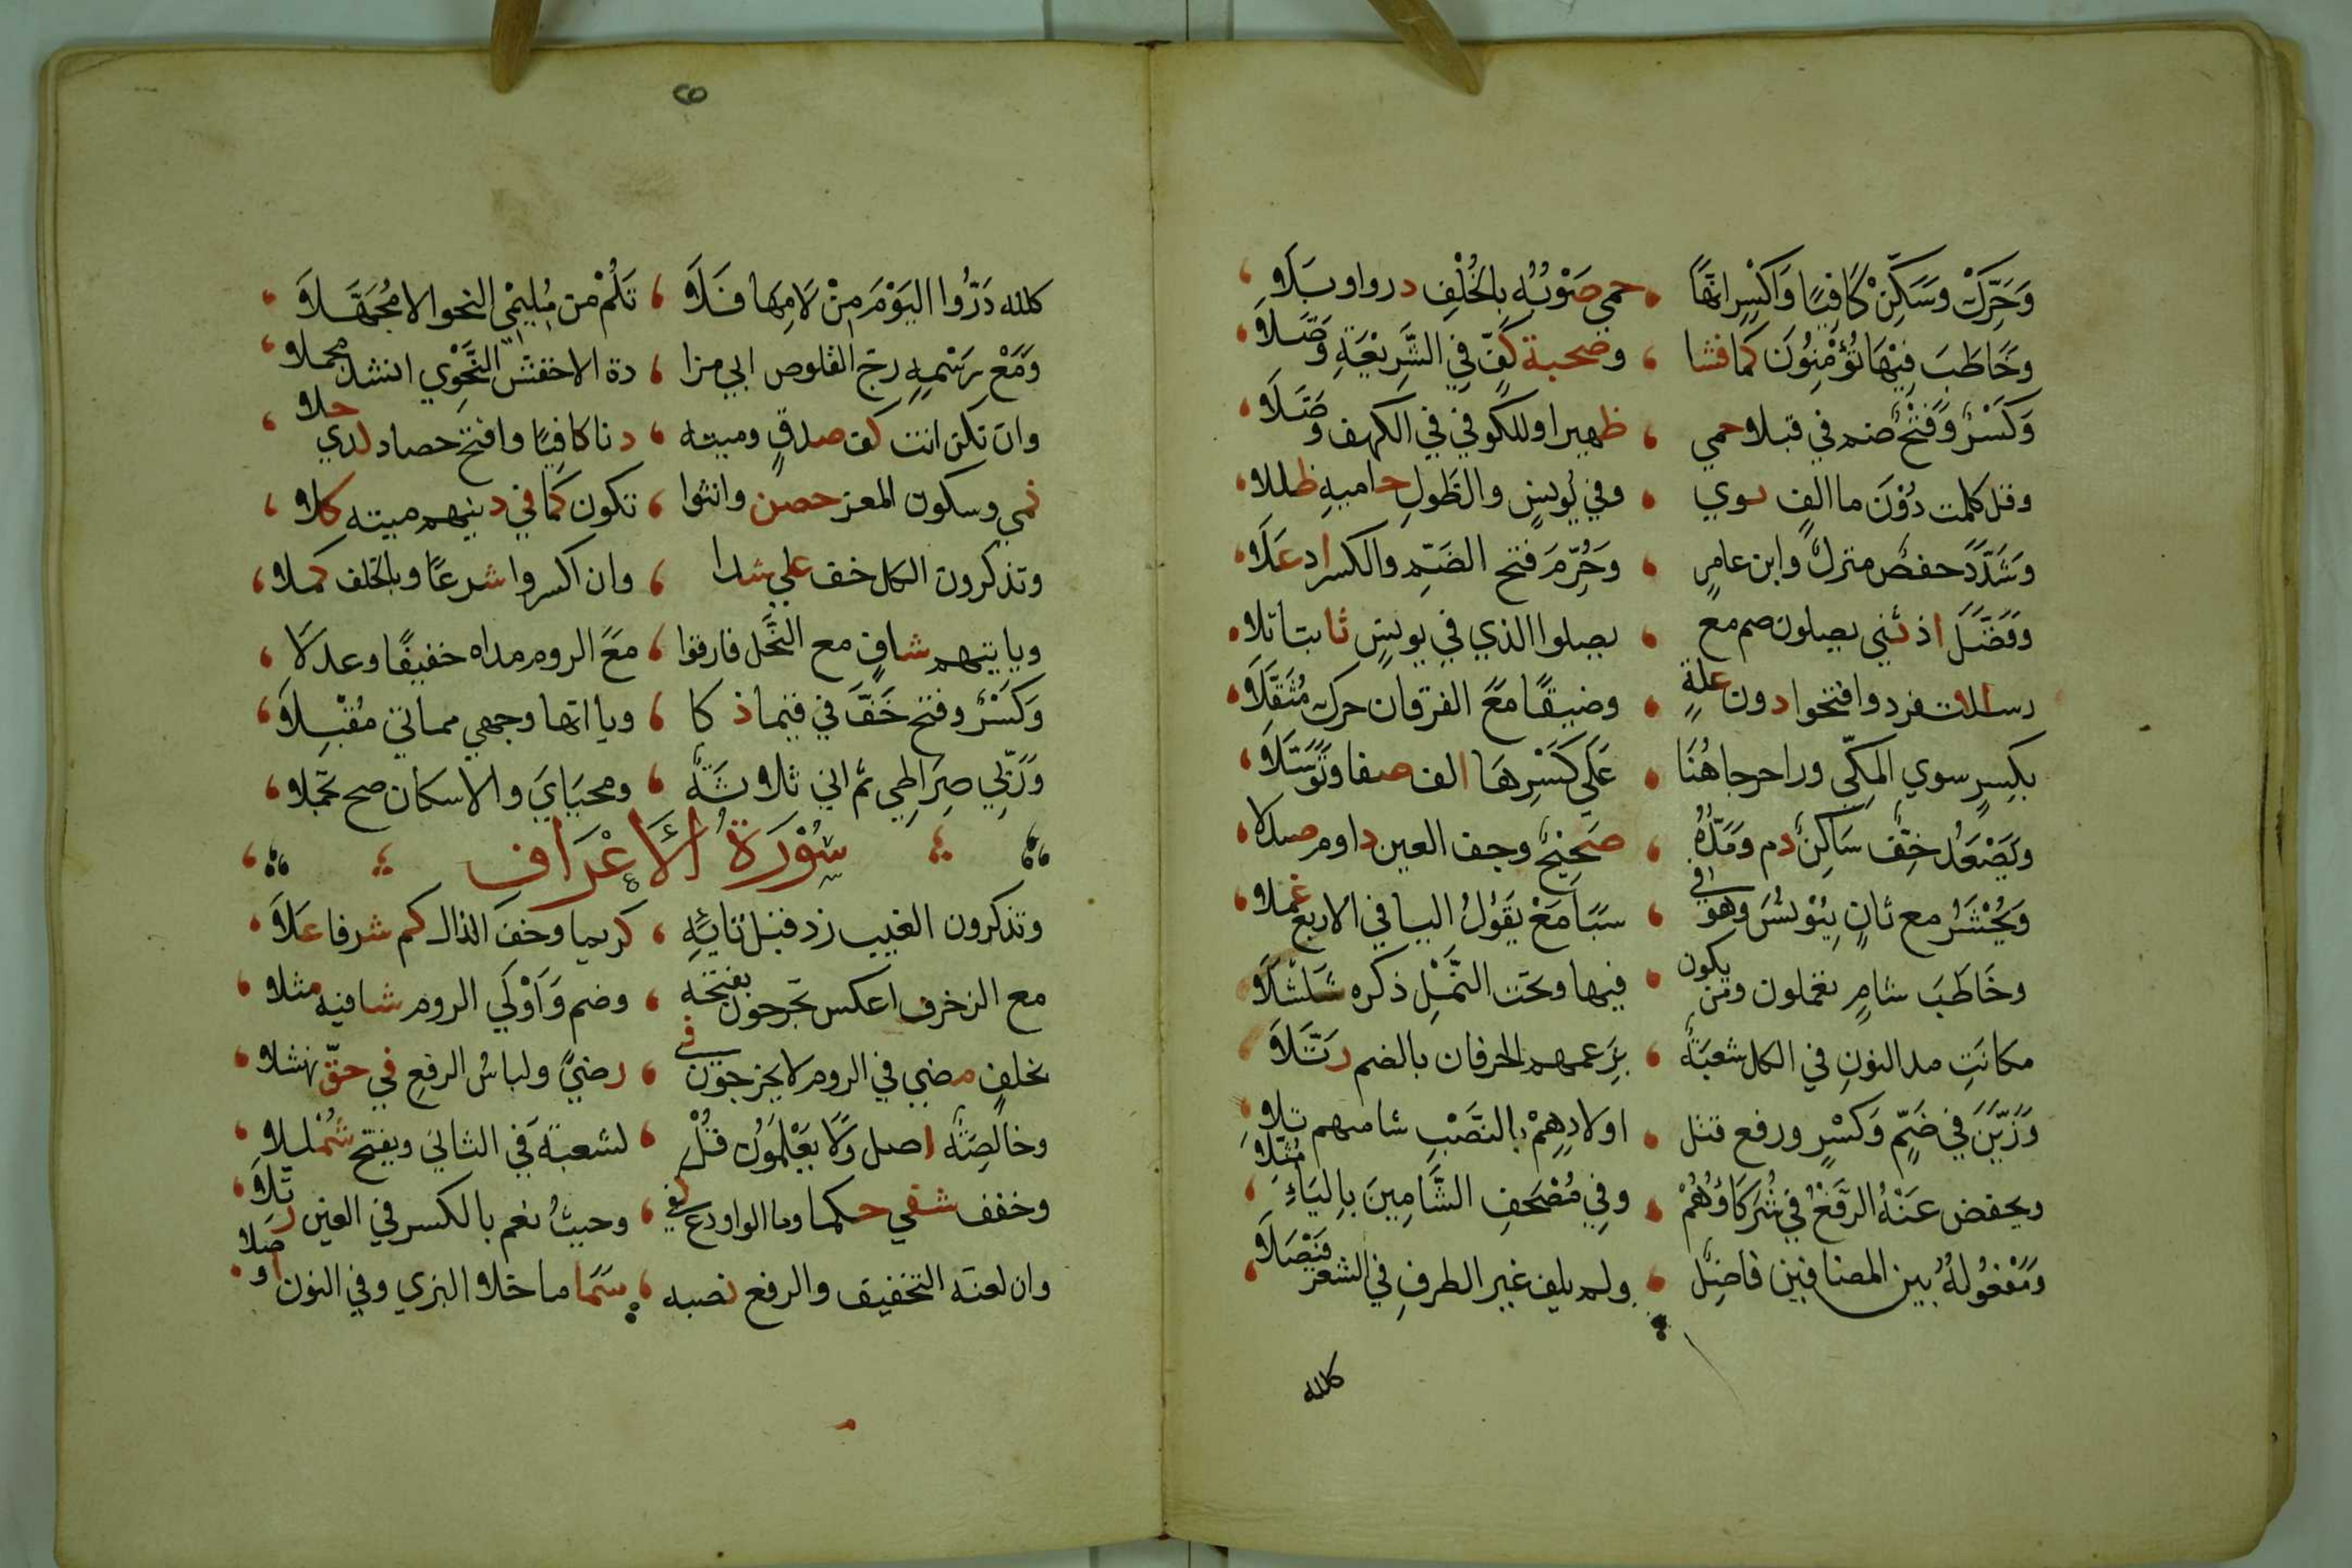 وَحَرِّكْ وَسَكِّنْ كَافِيًا وَاكْسِرِ انَّهَا ، حمى صَوْبُهِ بِالخُلْفِ در واوبَلَا
وَخَاطَبَ فِيْهَا تُؤْمِنُونَ كَمَا فشا ، وصحبة كفّ فِي الشَّرِيْعَةِ وَصَّلَا
وَكَسْرٌ وَفَتْحٌ ضم في قبلا حمى ، ظهيرا وللكوفي في الكهف وُصَّلَا
وقل كلمت دُوْنَ ما الفٍ ثوي ، وفي يُونسٍ والطَولِ حاميهِ ظللا
وَشَدَّدَ حفصٌ منزلٌ وابن عامرٍ ، وَحُرِّمَ فتح الضَمِّ والكسر اد عَلَا
وَفَصَّلَ اذ ثني يضلون ضم مع ، يضلوا الذي في يونسٍ ثابتا تلا
رسالات فرد وافتحوا دون علةٍ ، وضيقًا مَعَ الفرقان حرك مُثَقَّلَا
بكسرٍ سوي المكِّي ورا حرجا هُنَا ، عَلَى كَسْرِهَا الف صفا وتَوَسَّلَا
وَيَصْعَدُ خِفٌّ سَاكِنٌ دم وَمَدُّهُ ، صَحِيْحٌ وخف العين داوم صندلا
وَيُحْشَرُ مع ثانٍ بِيُوْنُسَ وهو في ، سَبَا مَعْ يَقُوْلُ اليا في الاربع عملا
وخَاطَبَ شامٍ تعملون ومن يكون ، فيها وتحت النَّمْلِ ذكره شَلْشَلَا
مكانَتِ مد النونِ في الكل شعبَةٌ ، بِزَعمهم الحرفان بالضم رتَّلَا
وَزَيَّنَ في ضَمٍّ وَكَسْرٍ ورفع قتل ، اولادِهِمْ بالنَّصْبِ شاميهم تلا
ويخفض عَنْهُ الرَّفْعُ في شُرَكَاؤُهُمْ ، وفي مُصْحَفِ الشَّامِينَ بِاليَاءِ مُثِّلَا
وَمَفْعُولُهُ بين المضافين فاضِلٌ ، ولم يلف غير الظرفِ في الشعر فَيْصَلَا
كلله
كلله دَرُّ وا اليَوْمَ مِنْ لَامِهَا فَلَا ، تَلُمْ من مُلِيْمِي النحو الا مُجَهَّلَا
وَمَعْ رَسْمِهِ زج القلوص ابي مزا ، دة الاخفش النَّحْوِي انشد مجملا
وان تكن انث كف صدقٍ وميتة ، دنا كافِيًا وافتح حصاد لدي حلا
نمي وسكون المعز حصن وانثوا ، تكون كما في دينهم ميته كلا
وتذكرون الكل خف علي شذا ، وان اكسروا شرعًا وبالخلف كملا
وياتيهم شافٍ مع النَّحْل فارقوا ، مَعَ الروم مداه خفيفًا وعدلَا
وَكَسْرٌ وفتح خَفَّ في قيما ذكا ، وياآتها وجهي مماتي مُقْبِلَا
وَرَبِّي صِرَاطِي ثم اني ثلاثَةٌ ، ومحيَايَ والاسكان صح تحملا
سُوْرَةُ الأَعْرَاف
وتذكرون الغيب زد قبل تائِهِ ، كريما وخف الذال كم شرفا عَلَا
مع الزخرف اعكس تخرجون بفتحة ، وضم وَاَوْلَى الروم شافيه مثلا
بخلفٍ مضي في الروم لا يخرجون في ، رضيً ولباسُ الرفعِ في حقّ نهشلا
وخالِصَةٌ اصل وَلَا يَعْلَمُوْن قُلْ ، لشعبَة في الثاني ويفتح شُمْللا
وخفف شفي حكما وما الواو دع كفي ، وحيثُ نعم بالكسر في العين رتِّلَا
وان لعنة التخفيف والرفع نصبه ، سَمَا ما خلا البزي وفي النون اوصلا